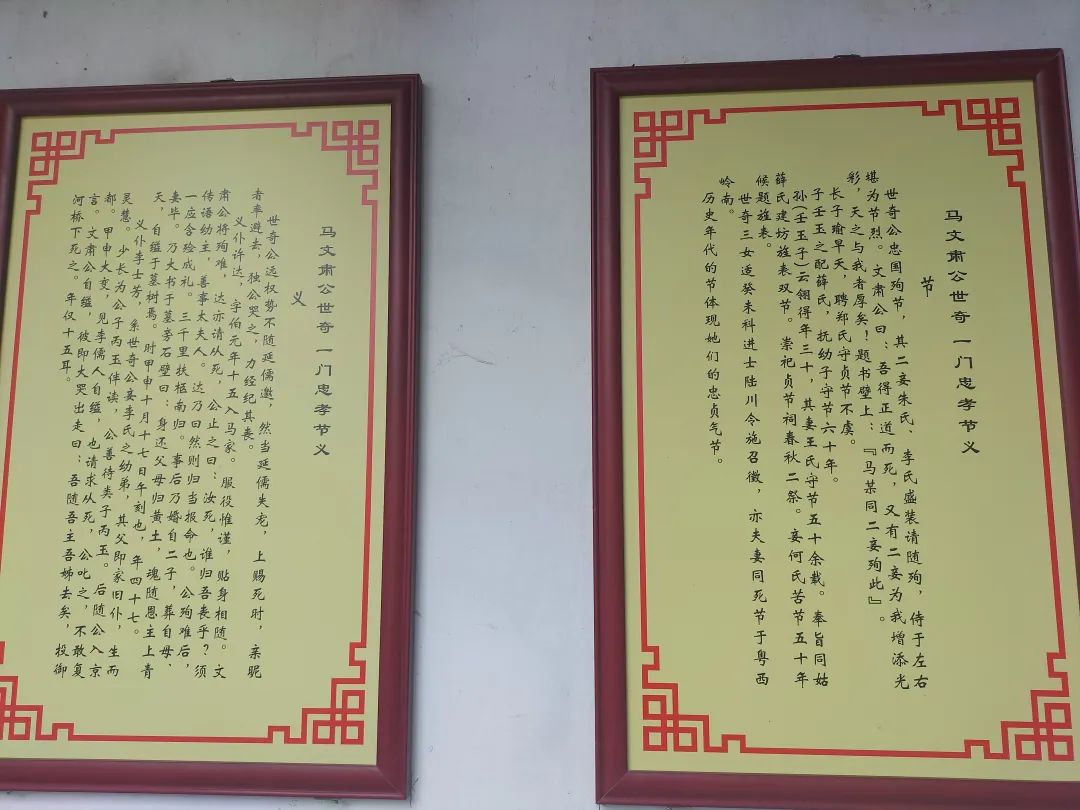 马文肃公世奇一门忠孝节义
节
世奇公忠国殉节，其二妾朱氏、李氏盛装请随殉，侍于左右
堪为节烈。文肃公曰：吾得正道而死，又有二妾为我增添光
彩，天之与我者厚矣！题书壁上：『马某同二妾殉此』。
长子瑜早夭，聘郑氏守贞节不虞。
子壬玉之配薛氏，抚幼子守节六十年。
孙(壬玉子)云翎得年三十，其妻王氏守节五十余载。奉旨同姑
薛氏建坊旌表双节。崇祀贞节祠春秋二祭。妾何氏苦节五十年
候题旌表。
世奇三女适癸未科进士陆川令施召徵，亦夫妻同死节于粤西
岭南。
历史年代的节体现她们的忠贞气节。
马文肃公世奇一门忠孝节义
义
世奇公远权势不随延儒邀，然当延儒失宠，上赐死时，亲昵
者率避去，独公哭之，力经纪其丧。
义仆许达，字伯元年十五入马家。服役惟谨，贴身相随。文
肃公将殉难，达亦请从死，公止之曰：汝死，谁归吾丧乎？须
传语幼主，善事太夫人。达乃曰然则归当报命也。公殉难后，
一应含殓成礼。三千里扶柩南归。事后乃婚自二子，葬自母、
妻毕。乃大书于墓旁石壁曰：身还父母归黄土，魂随恩主上青
天，自缢于墓树焉。时甲申十月十七日午刻也，年四十七。
义仆李士芳，系世奇公妾李氏之幼弟，其父即家旧仆，生而
灵慧。少长为公子丙玉伴读，公善待类子丙玉。后随公入京
都。甲申大变，见李儒人自缢，也请求从死，公叱之，不敢复
言。文肃公自缢，彼即大哭出走曰：吾随吾主吾姊去矣，投御
河桥下死之。年仅十五耳。